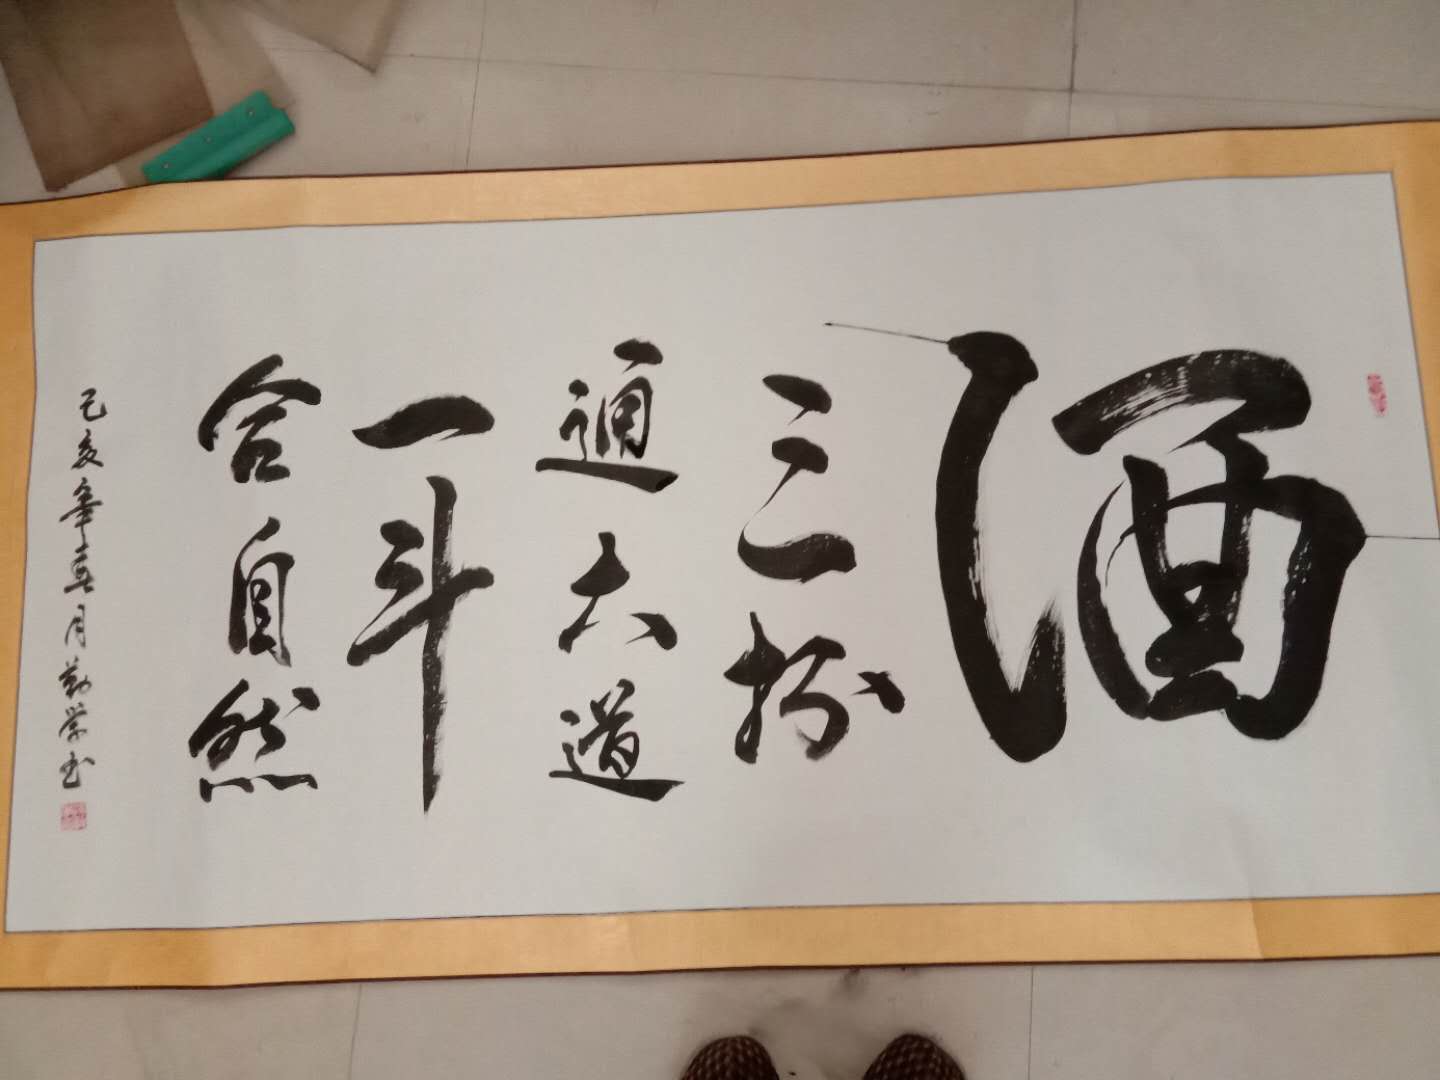 酒
三杯
通大道
一斗
合自然
己亥年月勤学书